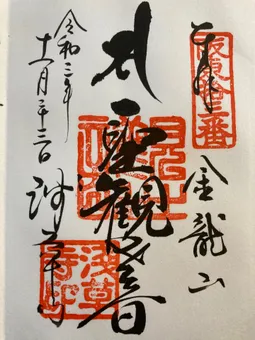 奉拝
坂東十三番
金龍山
聖観音
浅草寺
令和二年
十一月二十三日
浅草寺印